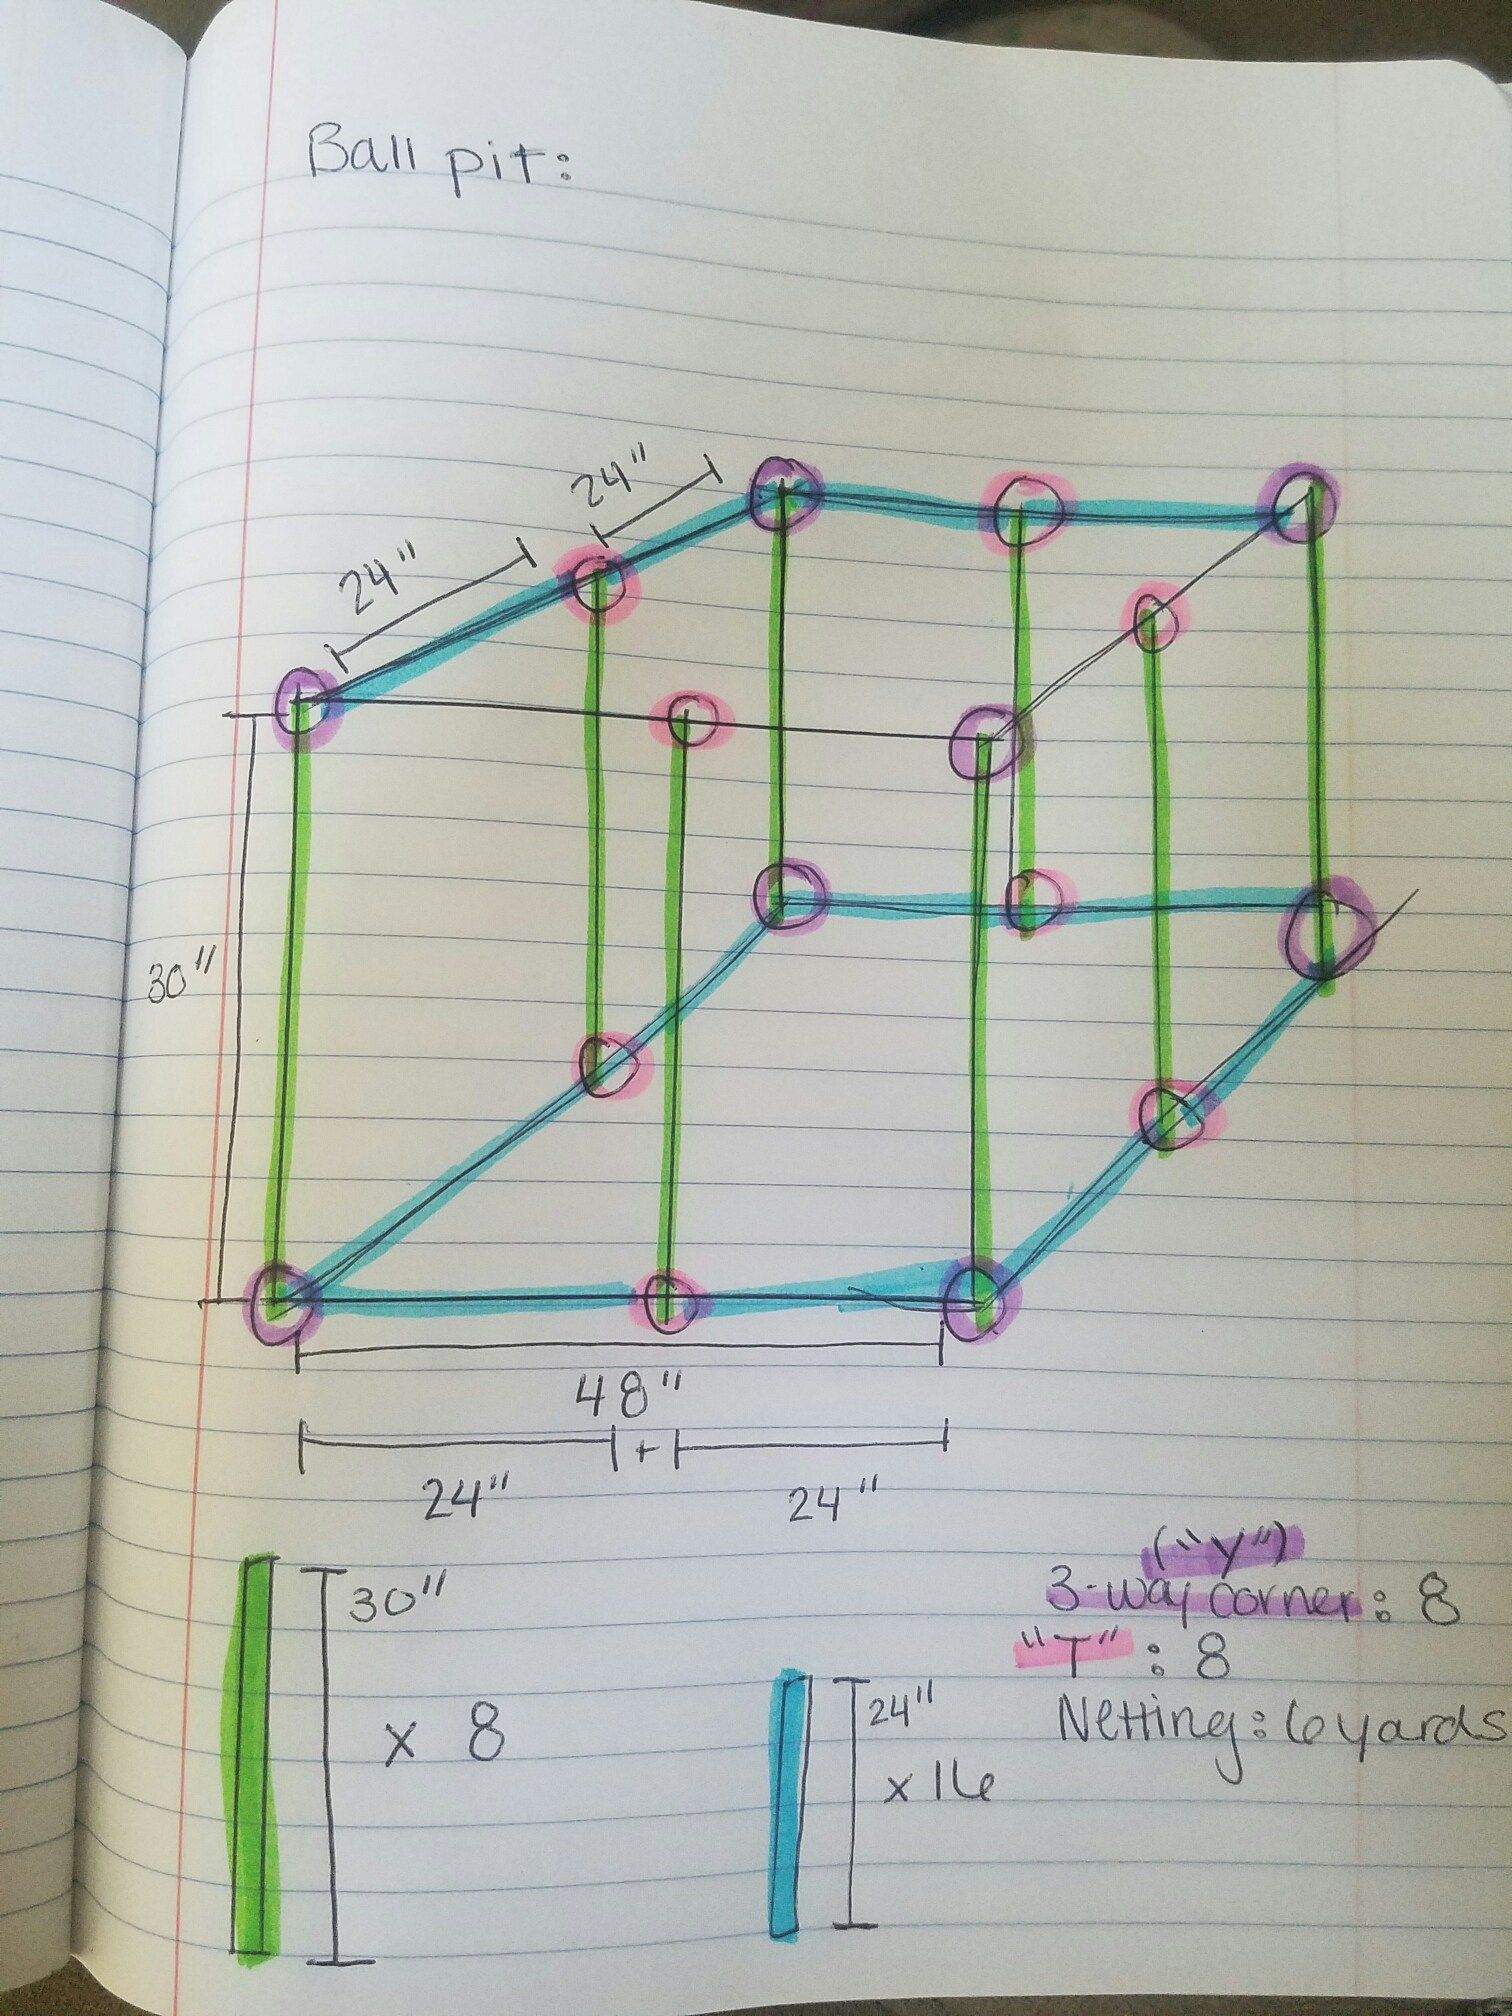 Ball pit:
24"
24"
30"
48"
+
24"
24"
("Y")
3-way corner: 8
"T" : 8
Netting: 6 yards
30"
x 8
24"
x 16